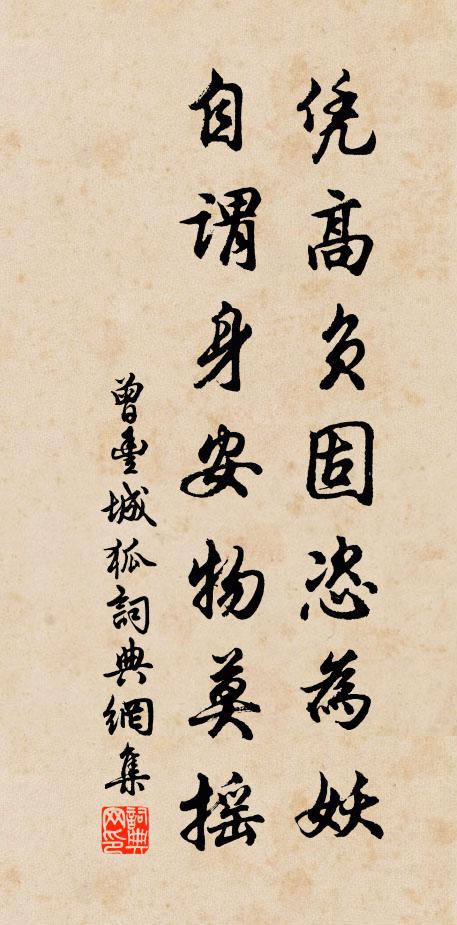 凭高负固恣為妖
自謂身安物莫摇
曾豊城狐詞典網集
詞典网印